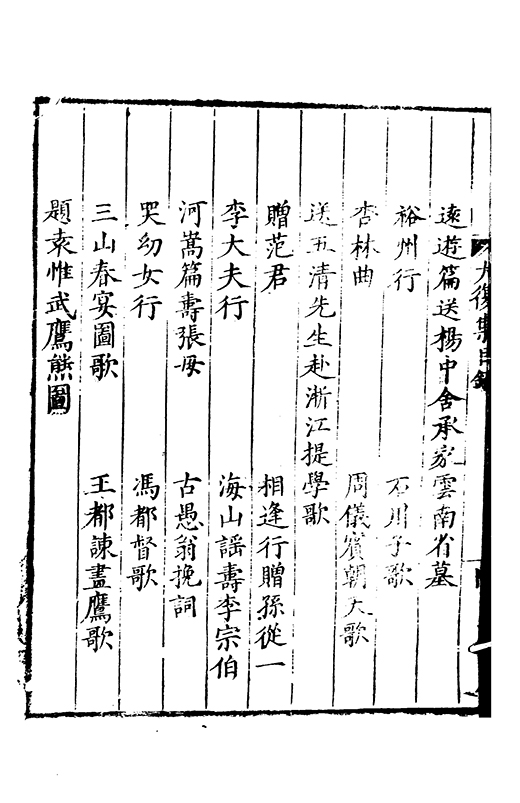 大復集目錄
遠遊篇送楊中舍承家雲南省墓
裕州行　石川子歌
杏林曲　周儀賓朝天歌
送五清先生赴浙江提學歌
贈范君　相逢行贈孫從一
李大夫行　海山謡壽李宗伯
河嵩篇壽張母　古愚翁挽詞
哭幼女行　馮都督歌
三山春宴圖歌　王都諫畫鷹歌
題袁惟武鷹熊圖